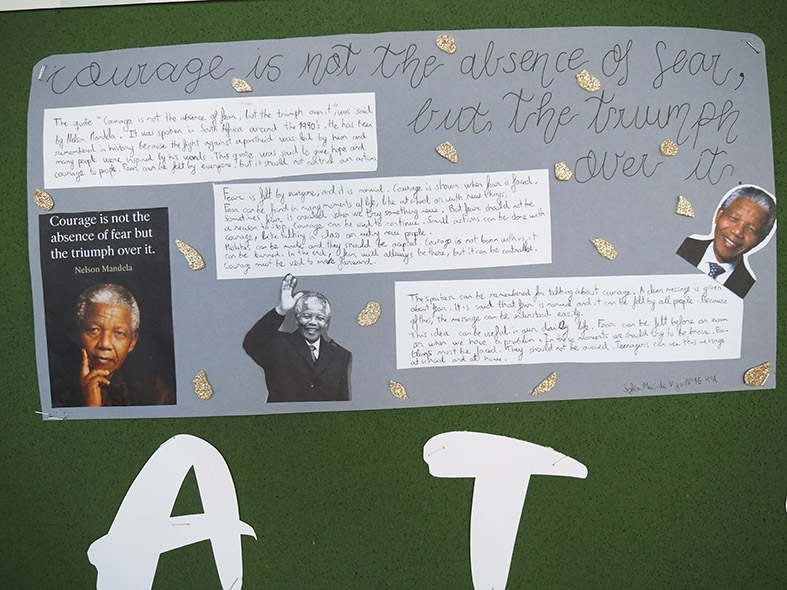 courage is not the absence of fear,
but the triumph
over it.
The quote "Courage is not the absence of fear, but the triumph over it" was said
by Nelson Mandela. It was spoken in South Africa around the 1990's. He has been
remembered in history because the fight against apartheid was led by him and
many people were inspired by his words. This quote was said to give hope and
courage to people. Fear can be felt by everyone, but it should not control our actions
Fear is felt by everyone, and it is normal. Courage is shown when fear is faced.
Fear can be found in many moments of life, like at school or with new things.
Sometimes fear is created when we try something new. But fear should not be
a reason to stop. Courage can be used to continue. Small actions can be done with
courage, like talking in class or meeting new people.
Mistakes can be made and they should be accepted. Courage is not born with us, it
can be learned. In the end, fear will always be there, but it can be controlled.
Courage must be used to move forward.
Courage is not the
absence of fear but
the triumph over it.
Nelson Mandela
The speaker can be remembered for talking about courage. A clear message is given
about fear. It is said that fear is normal and it can be felt by all people. Because
of this, the message can be understood easily.
This idea can be useful in our daily life. Fear can be felt before an exam
or when we have a problem. In these moments we should try to be brave. Pro-
blems must be faced. They should not be avoided. Teenagers can use this message
at school and at home.
Nº15 4ºA
A T